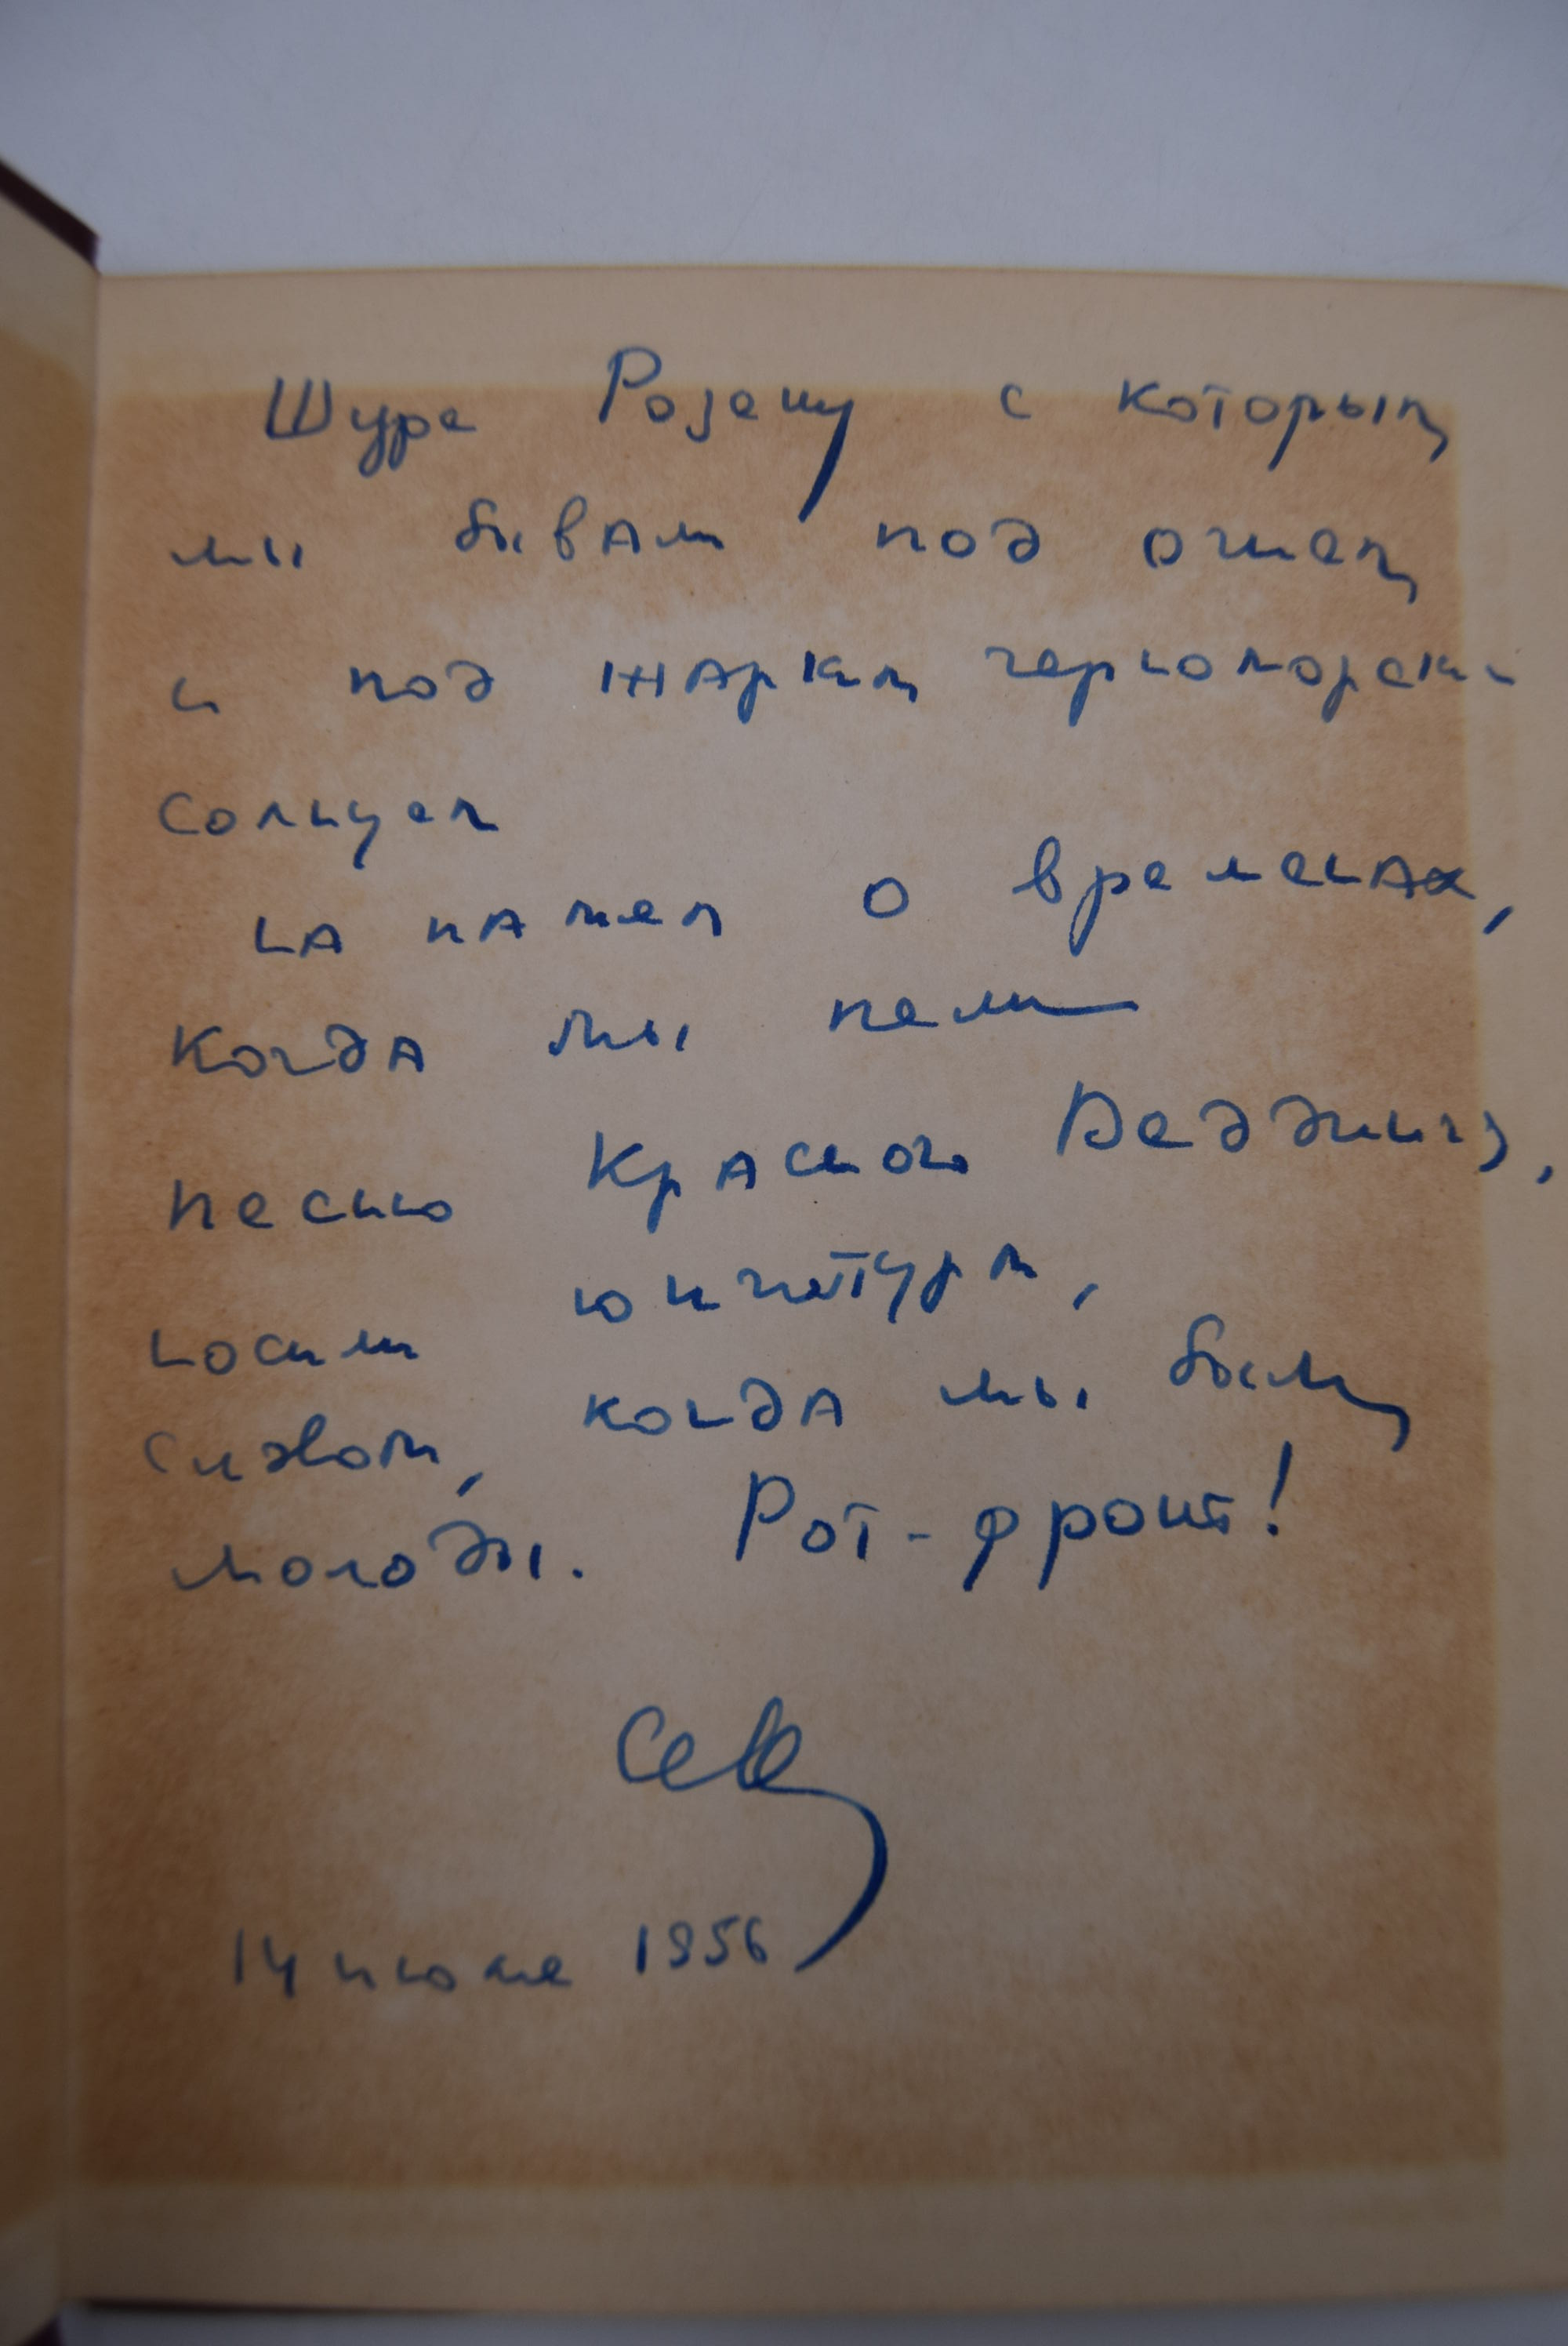 Шуре Розену с которым
мы бывали под огнем
и под жарким черноморским
солнцем
на память о временах,
когда мы пели
песню Красного Веддинга,
носили юнгштурм,
словом, когда мы были
молоды. Рот-фронт!
Сев
14 июля 1956